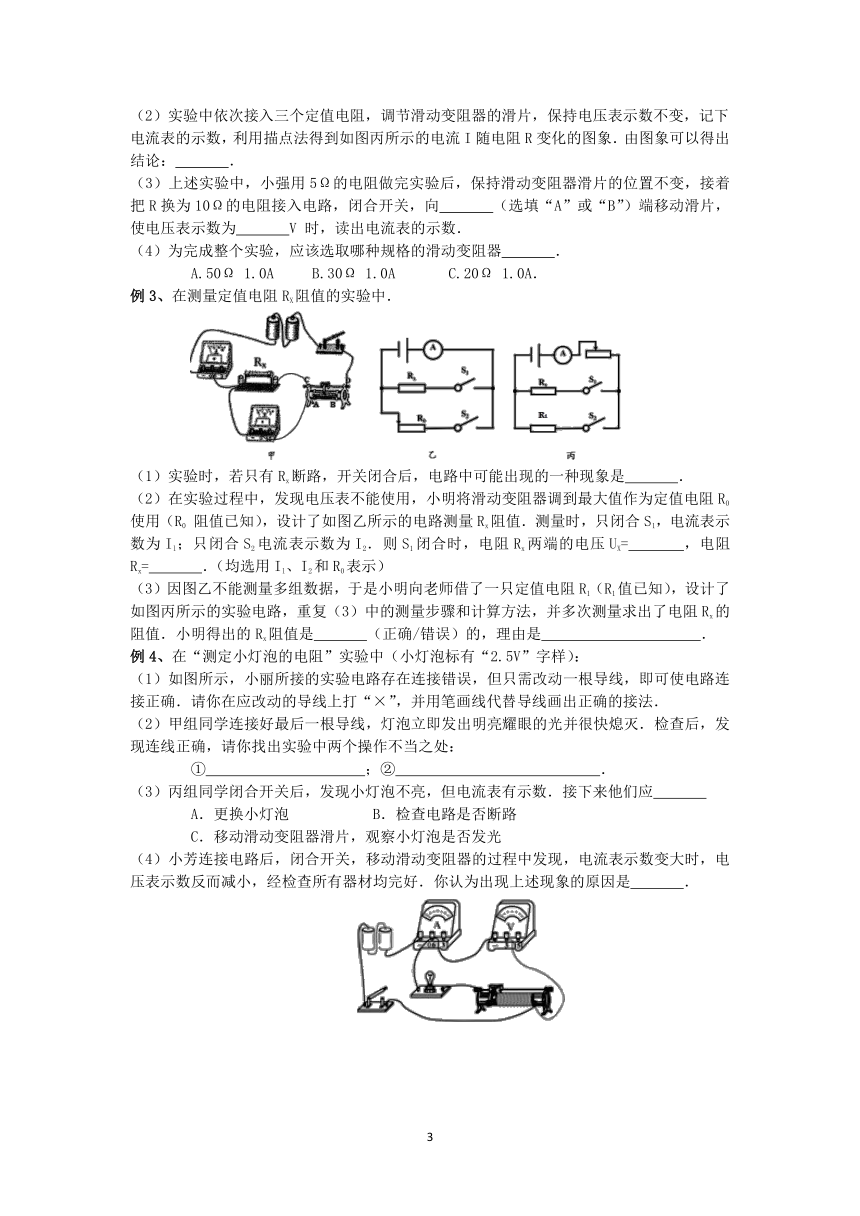 (2)实验中依次接入三个定值电阻,调节滑动变阻器的滑片,保持电压表示数不变,记下
电流表的示数,利用描点法得到如图丙所示的电流 I 随电阻 R 变化的图象.由图象可以得出
结论:_______.
(3)上述实验中,小强用 5Ω的电阻做完实验后,保持滑动变阻器滑片的位置不变,接着
把 R 换为 10Ω的电阻接入电路,闭合开关,向_______(选填“A”或“B”)端移动滑片,
使电压表示数为_______V 时,读出电流表的示数.
(4)为完成整个实验,应该选取哪种规格的滑动变阻器_______.
A.50Ω 1.0A B.30Ω 1.0A C.20Ω 1.0A.
例 3、在测量定值电阻 RX阻值的实验中.
RX
C D
A B
甲
A
Rx S1
R0 S2
乙
A
Rx S1
R1 S2
丙
(1)实验时,若只有 Rx断路,开关闭合后,电路中可能出现的一种现象是_______.
(2)在实验过程中,发现电压表不能使用,小明将滑动变阻器调到最大值作为定值电阻 R0
使用(R0 阻值已知),设计了如图乙所示的电路测量 Rx阻值.测量时,只闭合 S1,电流表示
数为 I1;只闭合 S2电流表示数为 I2.则 S1闭合时,电阻 Rx两端的电压 UX=_______,电阻
Rx=_______.(均选用 I1、I2和 R0表示)
(3)因图乙不能测量多组数据,于是小明向老师借了一只定值电阻 R1(R1值已知),设计了
如图丙所示的实验电路,重复(3)中的测量步骤和计算方法,并多次测量求出了电阻 Rx的
阻值.小明得出的 Rx阻值是_______(正确/错误)的,理由是_____________________.
例 4、在“测定小灯泡的电阻”实验中(小灯泡标有“2.5V”字样):
(1)如图所示,小丽所接的实验电路存在连接错误,但只需改动一根导线,即可使电路连
接正确.请你在应改动的导线上打“×”,并用笔画线代替导线画出正确的接法.
(2)甲组同学连接好最后一根导线,灯泡立即发出明亮耀眼的光并很快熄灭.检查后,发
现连线正确,请你找出实验中两个操作不当之处:
①_____________________;②___________________________.
(3)丙组同学闭合开关后,发现小灯泡不亮,但电流表有示数.接下来他们应_______
A.更换小灯泡 B.检查电路是否断路
C.移动滑动变阻器滑片,观察小灯泡是否发光
(4)小芳连接电路后,闭合开关,移动滑动变阻器的过程中发现,电流表示数变大时,电
压表示数反而减小,经检查所有器材均完好.你认为出现上述现象的原因是_______.
A V
3